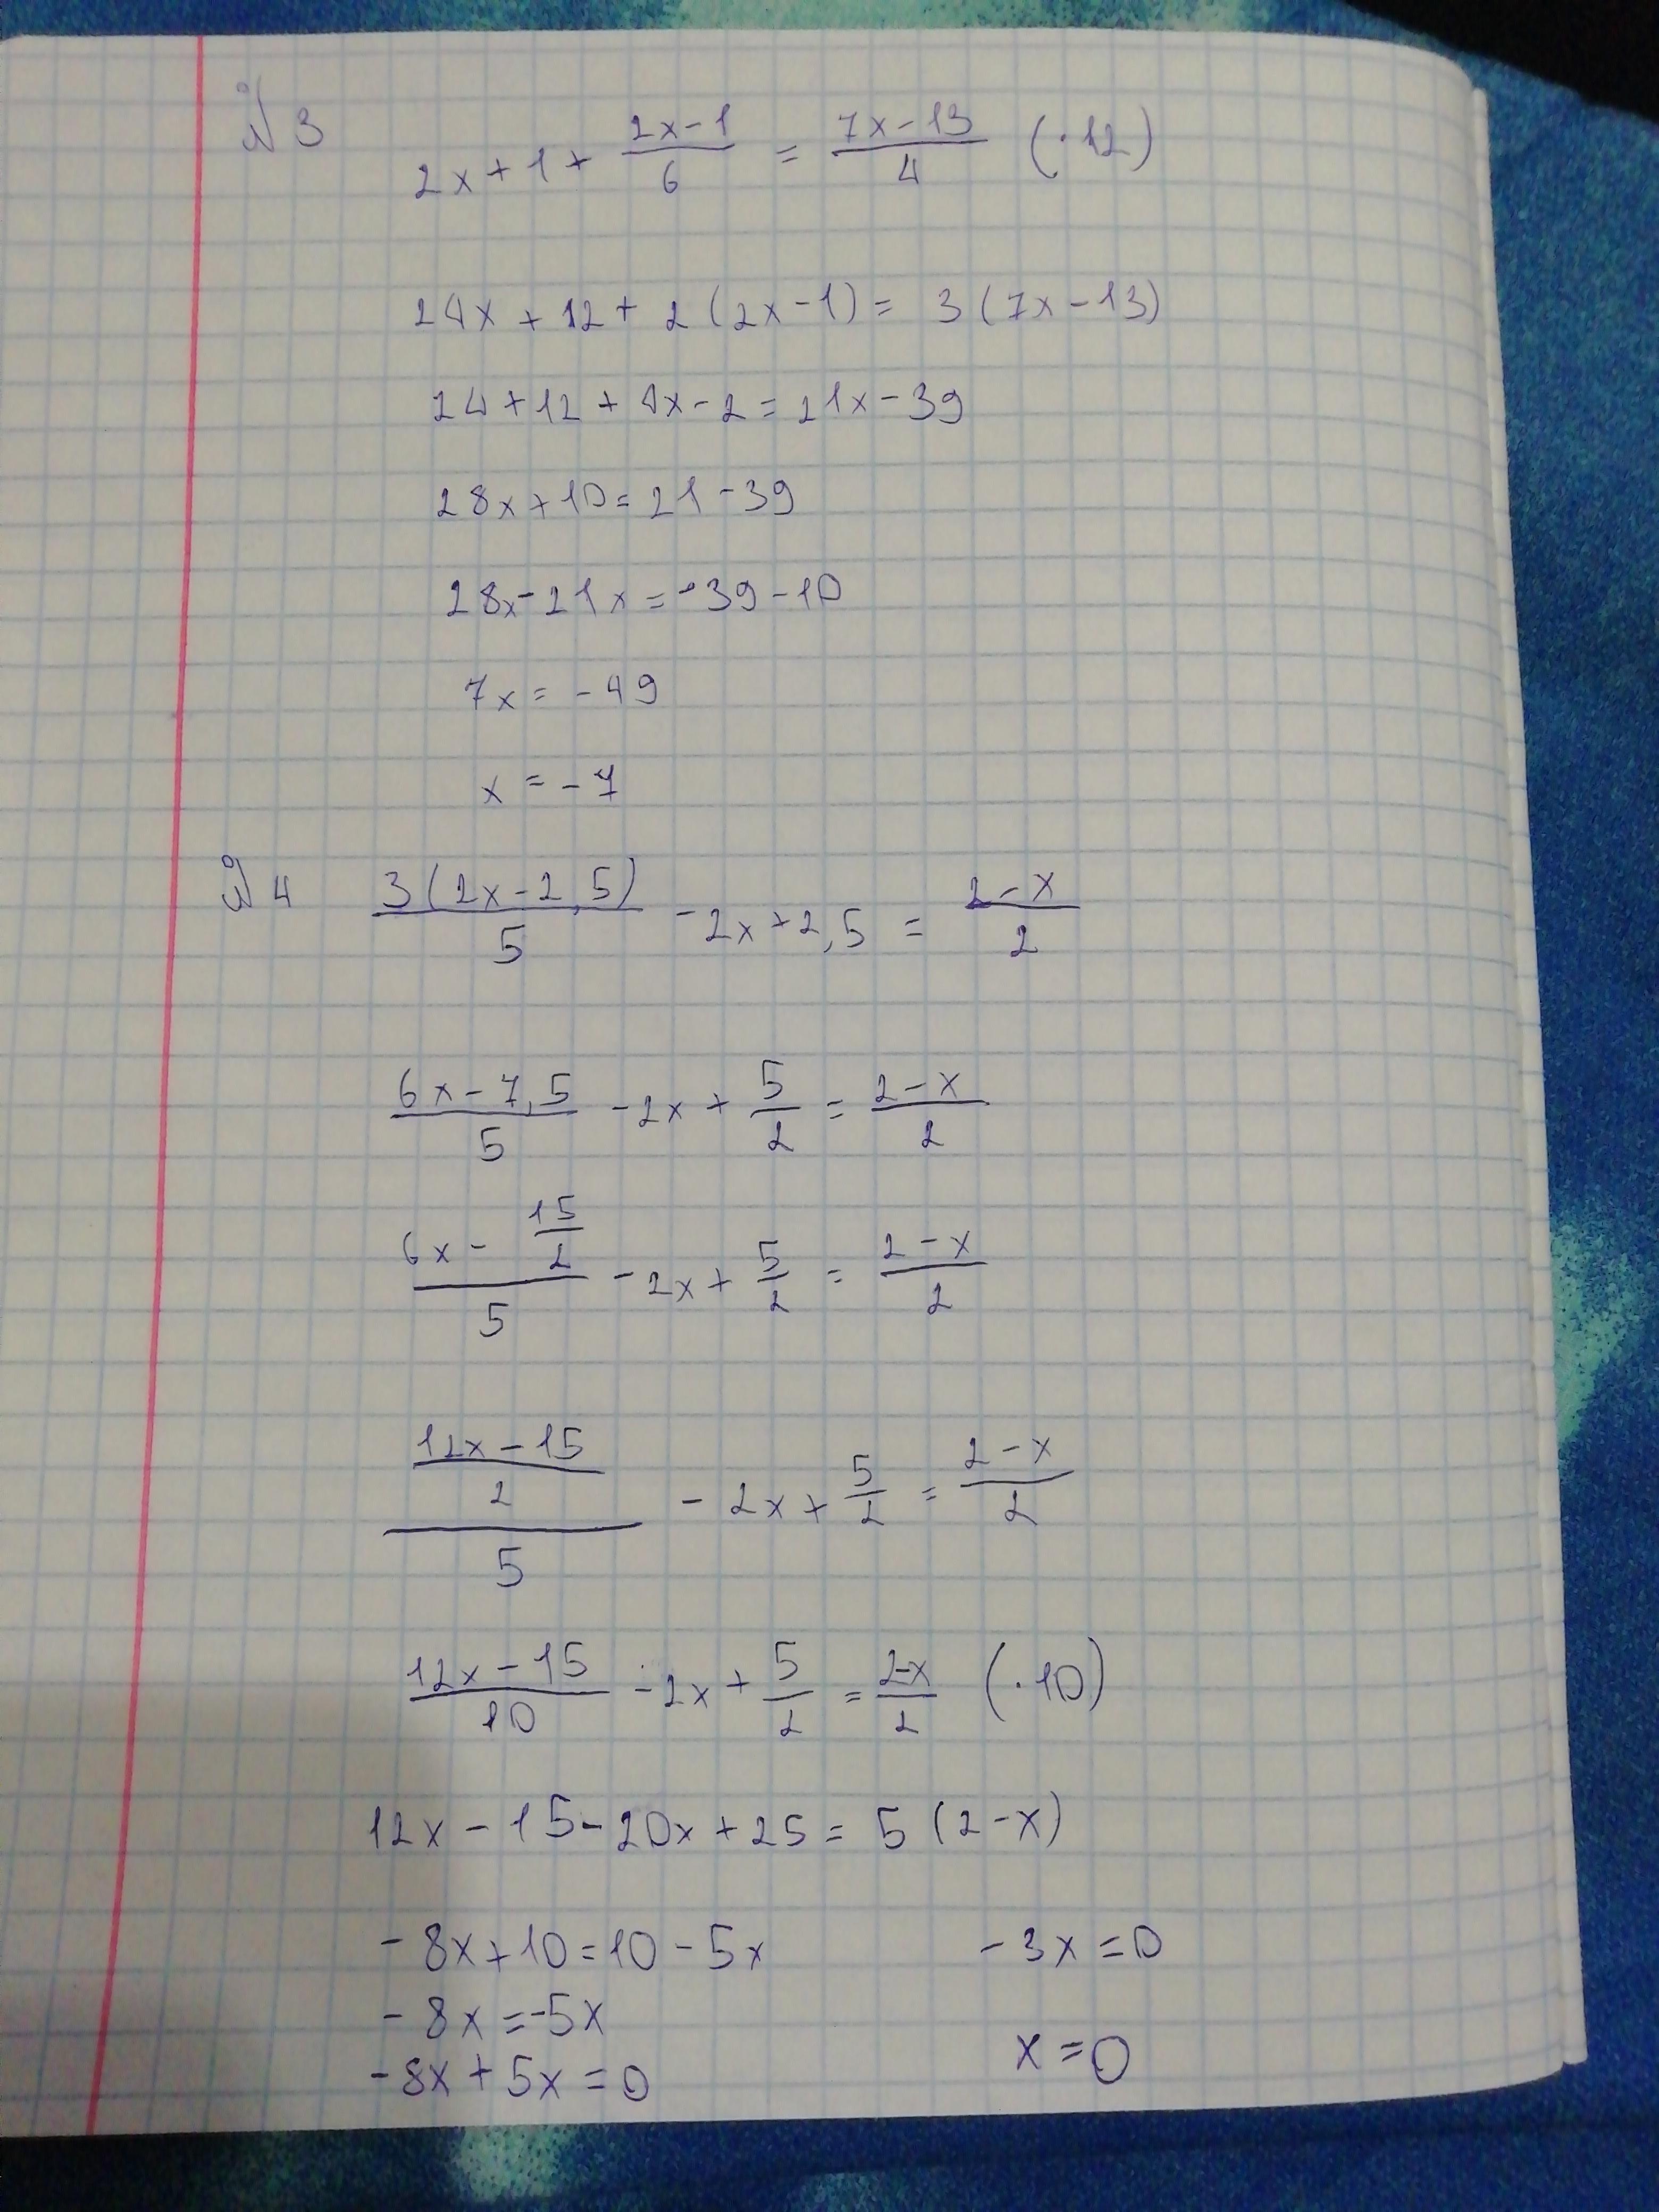 № 3
2x + 1 + (2x - 1)/6 = (7x - 13)/4 (· 12)
24x + 12 + 2 (2x - 1) = 3 (7x - 13)
24 + 12 + 4x - 2 = 21x - 39
28x + 10 = 21 - 39
28x - 21x = - 39 - 10
7x = - 49
x = - 7
№ 4 3(2x - 2,5)/5 - 2x + 2,5 = (2 - x)/2
(6x - 7,5)/5 - 2x + 5/2 = (2 - x)/2
(6x - 15/2)/5 - 2x + 5/2 = (2 - x)/2
((12x - 15)/2)/5 - 2x + 5/2 = (2 - x)/2
(12x - 15)/10 - 2x + 5/2 = (2-x)/2 (· 10)
12x - 15 - 20x + 25 = 5 (2 - x)
- 8x + 10 = 10 - 5x
- 8x = -5x
- 8x + 5x = 0
- 3x = 0
x = 0